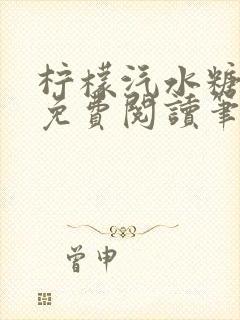 柠檬汽水糖
免費閱讀筆
曾申